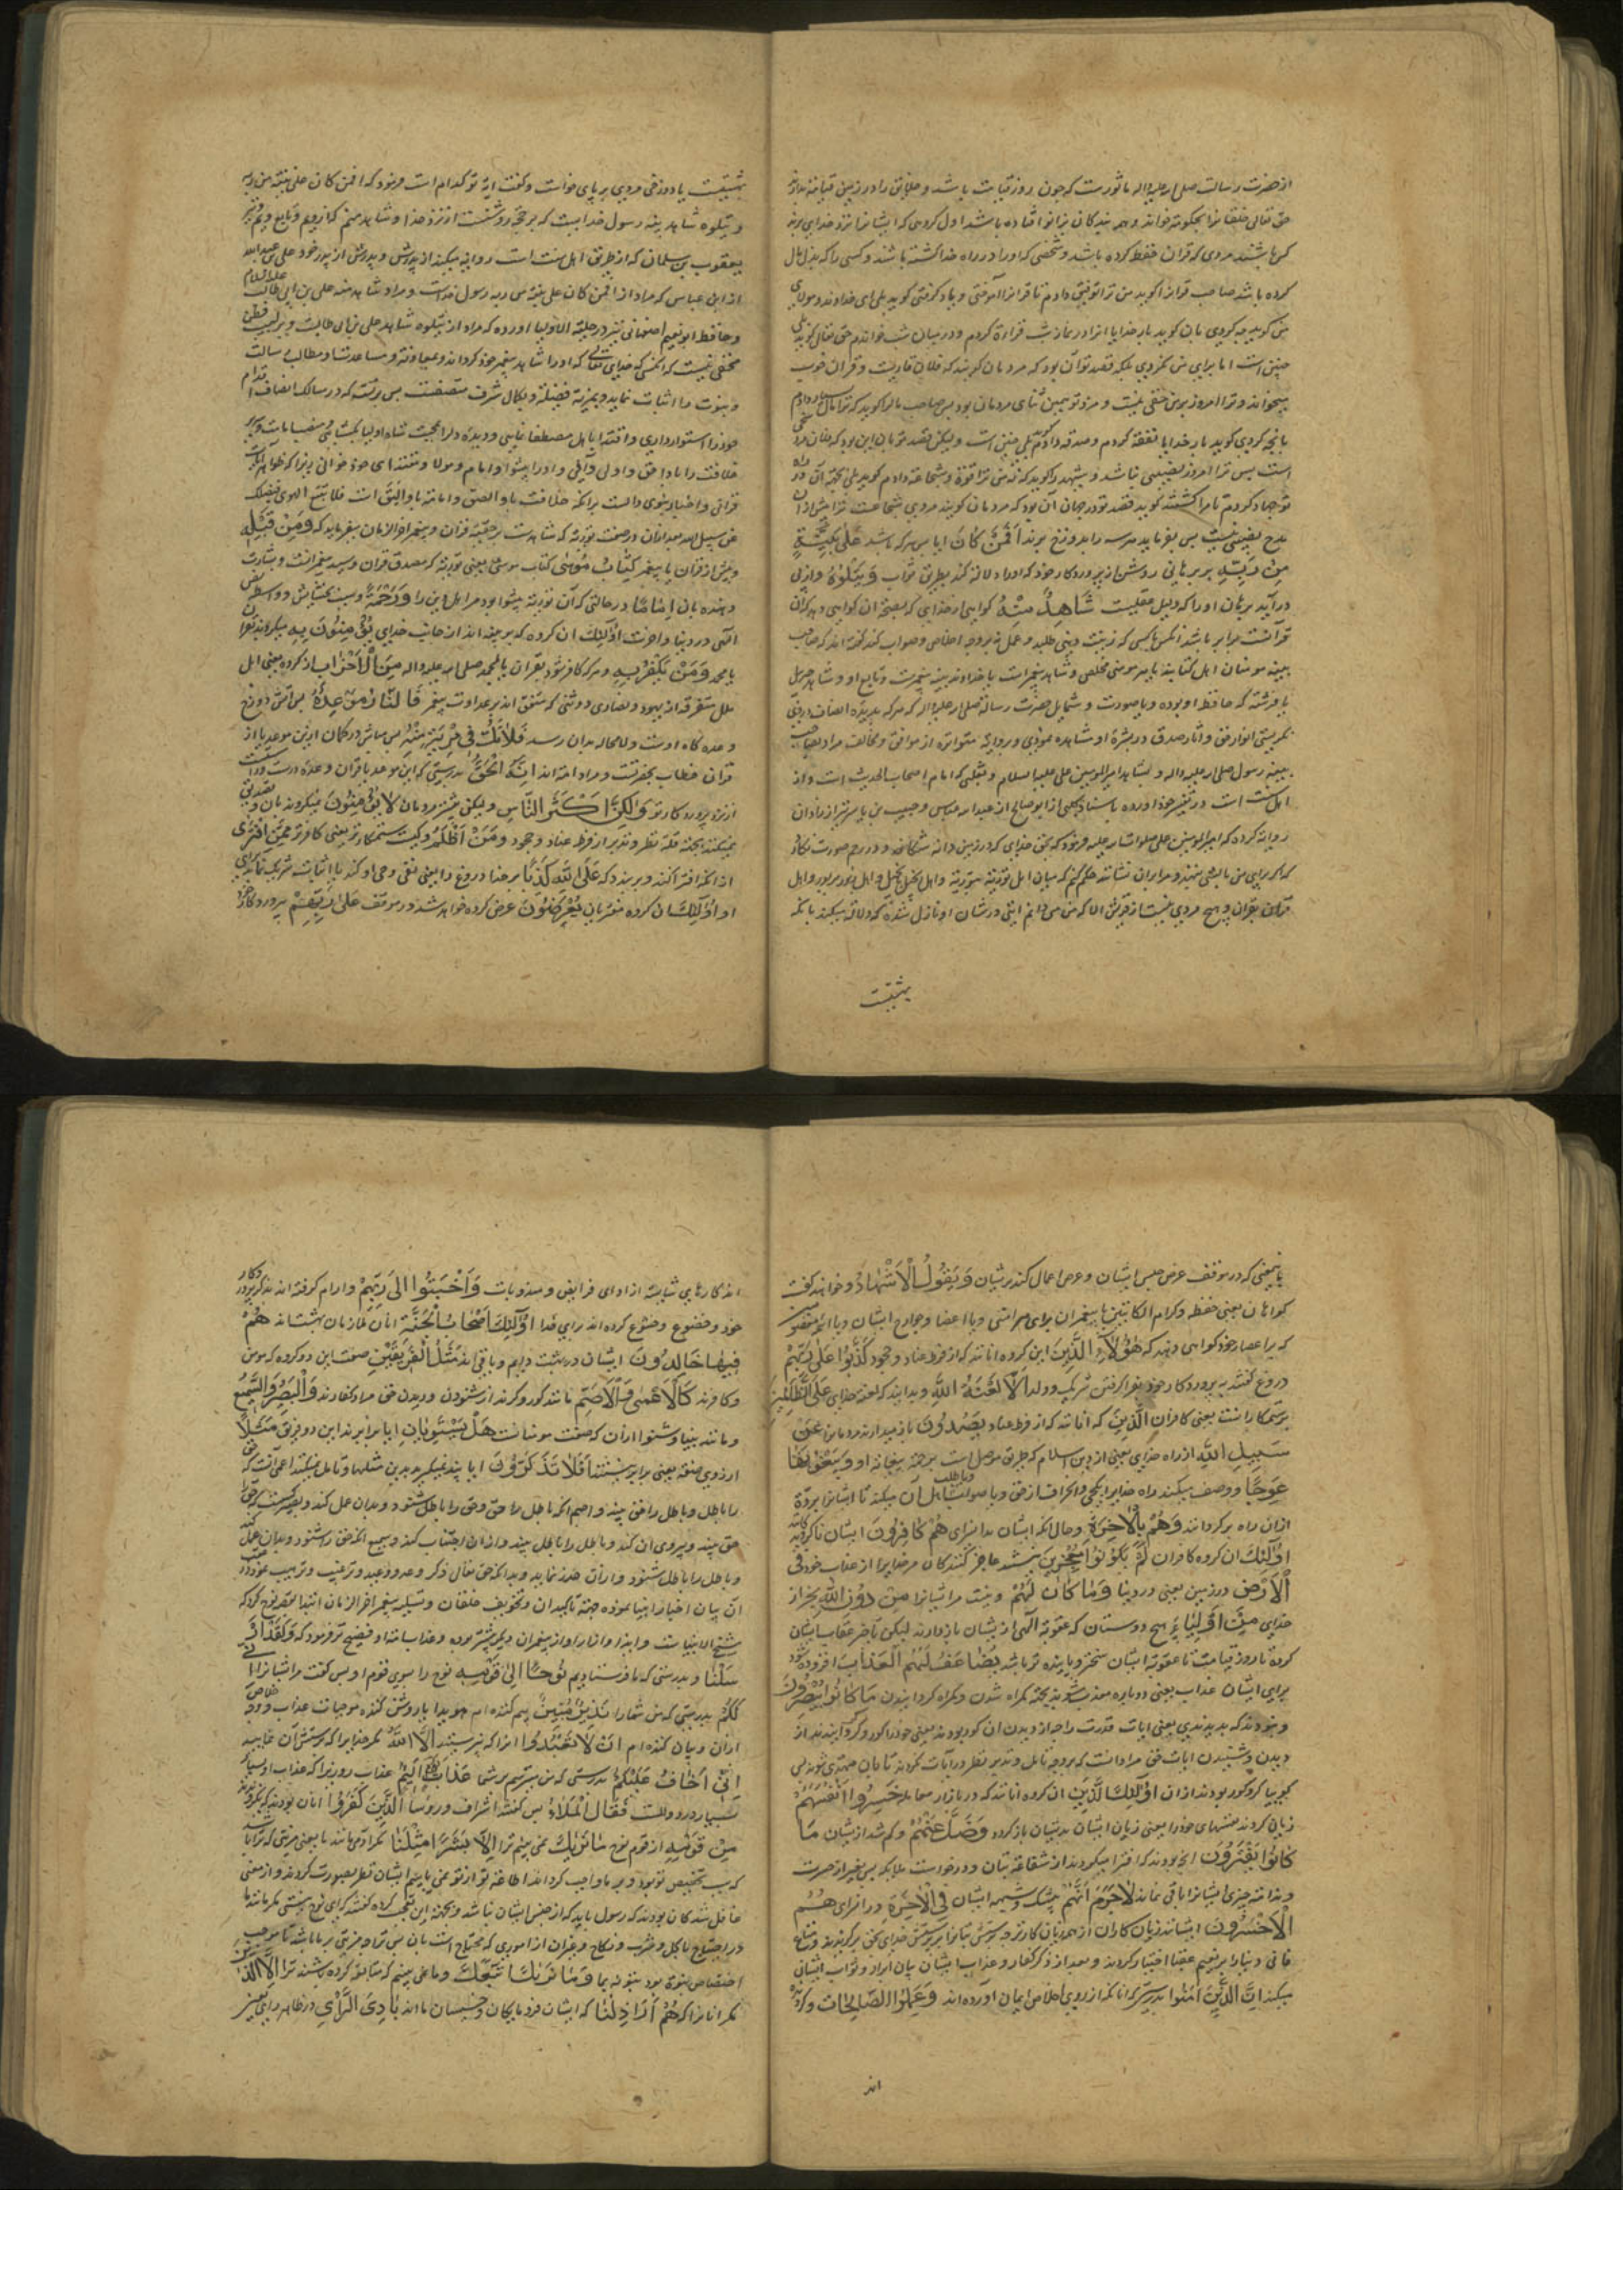 از حضرت رسالت صلی الله علیه واله ماثورست که چون روز قیامت باشد و خلایق را در زمین قیامة بدارند
حق تعالی خلقانرا بحکومة خواند و همه بندکان بزانو افتاده باشند اول کروهی که ایشانرا نزد خدای برند
کس باشند مردی که قران حفظ کرده باشد و شخصی که او را در راه خدا کشته باشند و کسی را که بذل مال
کرده باشد صاحب قرانرا کوید من ترا توفیق دادم تا قرانرا آموختی و یاد کرفتی کوید بلی ای خداوند و مولای
من کوید چه کردی بان کوید بار خدایا انرا در نمازشب قراءة کردم و در میان شب خواندم حق تعالی کوید بلی
چنین است اما برای من نکردی بلکه قصد تو آن بود که مردمان کویند که فلان قاریست و قران خوب
میخواند و ترا امروز برمن حقی نیست و مزد تو همین ثنای مردمان بود پس صاحب مالرا کوید که ترا مال بسیار دادم
بانچه کردی کوید بار خدایا نفقه کردم و صدقه دادم کوید بلی چنین است ولیکن قصد تو بان این بود که فلان مرد سخی
است پس ترا امروز نصیبی نباشد و شهید را کوید که نه من ترا قوة و شجاعة دادم کوید بلی بجهة آن در راه
تو جهاد کردم تا مرا کشتند کوید قصد تو در جهاد آن بود که مردمان کویند مردی شجاعست ترا بیش از ان
مدح نصیبی نیست پس بفرماید هرسه را بدوزخ برند اَفَمَنْ كَانَ ایا پس هرکه باشد عَلٰى بَيِّنَةٍ
مِنْ رَبِّهِ بر برهانی روشن از پروردکار خود که او را دلالة کند بطریق صواب وَيَتْلُوهُ و از پی
در آید برهان او را که دلیل عقلیست شَاهِدٌ مِنْهُ کواهی از خدای که بصحة ان کواهی دهد که آن
قرآنست برابر باشد انکس با کسی که زینت دنیی طلبد و عمل نه بروجه اخلاص و صواب کند کفته اند که صاحب
بینه مومنان اهل کتابند یا هر مومنی مخلص و شاهد پیغمبرست یا خداوند بینه پیغمبرست و تابع او و شاهد جبریل
یا فرشته که حافظ او بوده و یا صورت و شمایل حضرت رسالة صلی الله علیه واله که هرکه بدیده انصاف درو
نکریستی انوار حق و آثار صدق در بشرهٔ او مشاهده نمودی و روایة متواتره از موافق و مخالف مراد بصاحب
بینه رسول صلی الله علیه واله و بشاهد امیر المومنین علی علیه السلام و ثعلبی که امام اصحاب الحدیث است و از
اهل سنت است در تفسیر خود اورده باسناد کلبی از ابو صالح از عبد الله عباس و حبیب بن یاسر نیز از زادان
روایة کرده که امیر المومنین علی صلوات الله علیه فرمود که بحق خدای که در زمین دانه شکافد و در رحم صورت نکارد
که اکر برای من بالشی نهند و مرا بران نشانند حکم کنم که میان اهل توریة بتوریة و اهل انجیل بانجیل و اهل زبور بزبور و اهل
قران بقران و هیچ مردی نیست از قریش الا که من می دانم ایتی در شان او نازل شده که دلالة میکند بانکه
بهشتیست
بهشتیست یا دوزخی مردی بر پای خواست و کفت ایة تو کدام است فرمود که افمن کان علی بینة من ربه
و یتلوه شاهد منه رسول خدا بینه است که بر حجة روشنست از نزد خدا و شاهد منم که از ویم و تابع ویم
یعقوب بن سلمان که از طریق اهل سنت است روایة میکند از پدرش و پدرش از پدر خود علی بن عبد الله
از ابن عباس که مراد از افمن کان علی بینة من ربه رسول خداست و مراد شاهد منه علی بن ابی طالب علیه السلام
و حافظ ابو نعیم اصفهانی نیز در حلیة الاولیا اورده که مراد از یتلوه شاهد علی بن ابی طالبست و بر لبیب فطن
مخفی نیست که انکس که خدای تعالی که او را شاهد پیغمبر خود کرداند و بمعاونة و مساعدت او مطالب رسالت
و نبوت را اثبات نماید و بمزیة فضیلة و بکمال شرف متصفست پس برتست که در مسالک انصاف اقدام
خود را استوار داری و اقتدا باهل مصطفا نمایی و دیده دلرا بمحبت شاه اولیا
خلافت را باو احق و اولی دانی و او را پیشوا و امام و مولا و مقتدای خود خوانی زیرا که ظواهر آیات
قرانی و اخبار نبوی دالست برانکه خلافت باو الصق و امامة باو الیق است فلا تتبع الهوی فیضلک
عن سبیل الله بعد ازان در صفت توریة که شاهدست بر حقیة قران و پیغمبر اخر الزمان میفرماید که وَمِنْ قَبْلِهِ
و پیش از قران یا پیغمبر كِتَابُ مُوسٰى کتاب موسی یعنی توریة که مصدق قران و سید پیغمبرانست و بشارت
دهنده بان اِمَامًا در حالتی که آن توریة پیشوا بود مر اهل دین را وَرَحْمَةً و سبب بخشایش و واسطه فیض
الهی در دنیا و اخرت اُولٰٓئِكَ ان کروه که بر بینه اند از جانب خدای يُؤْمِنُونَ بِهِ میکروند بقران
یا محمد وَمَنْ يَكْفُرْ بِهِ و هرکه کافر شود بقران یا بمحمد صلی الله علیه واله مِنَ الْاَحْزَابِ از کروه یعنی اهل
ملل متفرقه از یهود و نصاری و وثنی که متفق اند بر عداوت پیغمبر فَالنَّارُ مَوْعِدُهُ پس آتش دوزخ
وعده کاه اوست و لا محاله بدان رسد فَلَاتَكُ فِي مِرْيَةٍ مِنْهُ پس مباش در کمان ازین موعد یا از
قران خطاب بحضرتست و مراد امة اند اِنَّهُ الْحَقُّ بدرستی که این موعد یا قران و عدهٔ درست و راستست
از نزد پروردکار تو وَلٰكِنَّ اَكْثَرَ النَّاسِ ولیکن بیشتر مردمان لَا يُؤْمِنُونَ نمیکروند بان و تصدیق
نمیکنند بجهة قلة نظر و تدبر از فرط عناد و جحود وَمَنْ اَظْلَمُ و کیست ستمکارتر یعنی کافرتر مِمَّنِ افْتَرٰى
از انکه افترا کند و بربندد که عَلَى اللّٰهِ كَذِبًا بر خدا دروغ را یعنی نفی وحی او کند یا اثبات شریک نماید برای
او اُولٰٓئِكَ ان کروه مفتریان يُعْرَضُونَ عرض کرده خواهند شد در موقف عَلٰى رَبِّهِمْ بر پروردکار خود
بایمعنی که در موقف عرض حبس ایشان و عرض اعمال کنند بریشان وَيَقُولُ الْاَشْهَادُ و خواهند کفت
کواهان یعنی حفظه و کرام الکاتبین یا پیغمبران برای هر امتی و یا اعضا و جوارح ایشان و یا ائمه معصومین
که بر اعصار خود کواهی دهند که هٰؤُلَاءِ الَّذِينَ این کروه انانند که از فرط عناد و جحود كَذَبُوا عَلٰى رَبِّهِمْ
دروغ کفتند بر پروردکار خود بفرا کرفتن شریک و ولد اَلَا لَعْنَةُ اللّٰهِ بدانید که لعنة خدای عَلَى الظَّالِمِينَ
بر ستمکارانست یعنی کافران الَّذِينَ که انانند که از فرط عناد يَصُدُّونَ باز میدارند مردمانرا عَنْ
سَبِيلِ اللّٰهِ از راه خدای یعنی از دین اسلام که طریق موصل است برحمة بیغایة او وَيَبْغُونَهَا
عِوَجًا و وصف میکنند راه خدایرا بکجی و انحراف از حق و یا صواب و یا طلب اهل آن میکنند تا ایشانرا بردة
ازان راه برکردانند وَهُمْ بِالْاٰخِرَةِ و حال انکه ایشان بدانسرای هُمْ كَافِرُونَ ایشان ناکروند کانند
اُولٰٓئِكَ ان کروه کافران لَمْ يَكُونُوا مُعْجِزِينَ نیستند عاجز کنندکان مر خدایرا از عذاب خود فِي
الْاَرْضِ در زمین یعنی در دنیا وَمَا كَانَ لَهُمْ و نیست مر ایشانرا مِنْ دُونِ اللّٰهِ بجز از
خدای مِنْ اَوْلِيَاءَ هیچ دوستان که عقوبة الهی از یشان باز دارند لیکن تاخیر عقاب ایشان
کرده تا روز قیامت تا عقوبة ایشان سختر و پاینده تر باشد يُضَاعَفُ لَهُمُ الْعَذَابُ افزوده شود
برای ایشان عذاب یعنی دوباره معذب شوند بجهة کمراه شدن و کمراه کردانیدن مَا كَانُوا يُبْصِرُونَ
و نبودند که بدیدندی یعنی ایات قدرت را حذ از دیدن ان کور بودند یعنی خود را کور و کر کردانیدند از
دیدن و شنیدن ایات حق مراد انست که بروجه تامل و تدبر نظر در آیات نکردند تا بان مهتدی شوند پس
کوییا کر و کور بودند ازان اُولٰٓئِكَ الَّذِينَ ان کروه انانند که در بازار معامله خَسِرُوا اَنْفُسَهُمْ
زیان کردند نفسهای خود را یعنی زیان ایشان بدیشان باز کردد وَضَلَّ عَنْهُمْ و کم شد از یشان مَا
كَانُوا يَفْتَرُونَ انچه بودند که افترا میکردند از شفاعة بتان و درخواست ملایکه پس بغیر از حسرت
و ندامة چیزی ایشانرا باقی نماند لَاجَرَمَ اَنَّهُمْ بیشک و شبهه ایشان فِي الْاٰخِرَةِ در انسرای هُمُ
الْاَخْسَرُونَ ایشانند زیان کاران از همه زیان کارتر چه پرستش بتانرا بر پرستش خدای بحق برکزیدند و متاع
فانی دنیارا بر نعیم عقبا اختیار کردند و بعد از ذکر کفار و عذاب ایشان بیان ابرار و ثواب ایشان
میکند اِنَّ الَّذِينَ اٰمَنُوا بدرستی که انانکه از روی اخلاص ایمان آورده اند وَعَمِلُوا الصَّالِحَاتِ و کرده
اند
اند کارهای شایسته از ادای فرایض و مندوبات وَاَخْبَتُوا اِلٰى رَبِّهِمْ و ارام کرفته اند بذکر پروردکار
خود و خضوع و خشوع کرده اند برای خدا اُولٰٓئِكَ اَصْحَابُ الْجَنَّةِ انان ملازمان بهشتند هُمْ
فِيهَا خَالِدُونَ ایشان در بهشت دایم و باقی اند مَثَلُ الْفَرِيقَيْنِ صفت این دو کروه که مومن
و کافرند كَالْاَعْمٰى وَالْاَصَمِّ مانند کور و کرند از شنودن و دیدن حق مراد کفارند وَالْبَصِيرِ وَالسَّمِيعِ
و مانند بینا و شنوا اران که صفت مومنانست هَلْ يَسْتَوِيَانِ ایا برابرند این دو فریق مَثَلًا
از روی صفة یعنی برابر نیستند اَفَلَا تَذَكَّرُونَ ایا پند نمیکیرید بدین مثلها و تامل نمیکنید اعمی آنست که حق
را باطل و باطل را حق بیند و اصم انکه باطل را حق و حق را باطل شنود و بدان عمل کند و بصیر کسیست که حق را
حق بیند و پیروی ان کند و باطل را باطل بیند و ازان اجتناب کند و سمیع انکه حق را شنود و بدان عمل کند
و باطل را باطل شنود و ازان حذر نماید و بدانکه حق تعالی ذکر وعد و وعید و ترغیب و ترهیب نموده در عقب
آن بیان اخبار انبیا نموده جهة تاکید ان و تخویف خلقان و تسلیه پیغمبر اخر الزمان ابتدا بقصه نوح کرد که
شیخ الانبیاست و ابتدا و انذار او از پیغمبران دیکر پیشتر بوده و عذاب امة او فضیح تر فرمود که وَلَقَدْ اَرْ
سَلْنَا و بدرستی که ما فرستادیم نُوحًا اِلٰى قَوْمِهِ نوح را بسوی قوم او پس کفت مر ایشانرا اِنِّي
لَكُمْ بدرستی که من شما را نَذِيرٌ مُبِينٌ بیم کننده ام هویدا یا روشن کننده موجبات عذاب و وجه خلاص
ازان و بیان کننده ام اَنْ لَا تَعْبُدُوا انرا که نپرستید اِلَّا اللّٰهَ مکر خدایرا که پرستش آن نمایید
اِنِّي اَخَافُ عَلَيْكُمْ بدرستی که من میترسم بر شما عَذَابَ يَوْمٍ اَلِيمٍ عذاب روزیرا که عذاب او بسیار
بسیار دردناکست فَقَالَ الْمَلَاءُ پس کفتند اشراف و روسا الَّذِينَ كَفَرُوا انان بودند که نکرویدند
مِنْ قَوْمِهِ از قوم نوح مَا نَرٰيكَ نمی بینیم ترا اِلَّا بَشَرًا مِثْلَنَا مکر ادمی مانند ما یعنی مزیتی که ترا باشد
که سبب تخصیص تو بود و بر ما واجب کرداند اطاعة تو از تو نمی یابیم ایشان نظر بصورت کردند و از معنی
غافل شدند کان بودند که رسول باید که از جنس ایشان نباشد و بجهة این تعجب کرده کفتند که ای نوح نیستی مکر مانند ما
در احتیاج باکل و شرب و نکاح و غیر ان از اموری که محتاج است بان پس ترا مزیتی بر ما باشد تا موجب
اختصاص نبوة بود نبود بر ما وَمَا نَرٰيكَ اتَّبَعَكَ و ما نمی بینیم که متابعة کرده باشند ترا اِلَّا الَّذِينَ
مکر انانرا که هُمْ اَرَاذِلُنَا که ایشان فرومایکان و خسیسان مااند بَادِيَ الرَّاْيِ در ظاهر رای بغیر